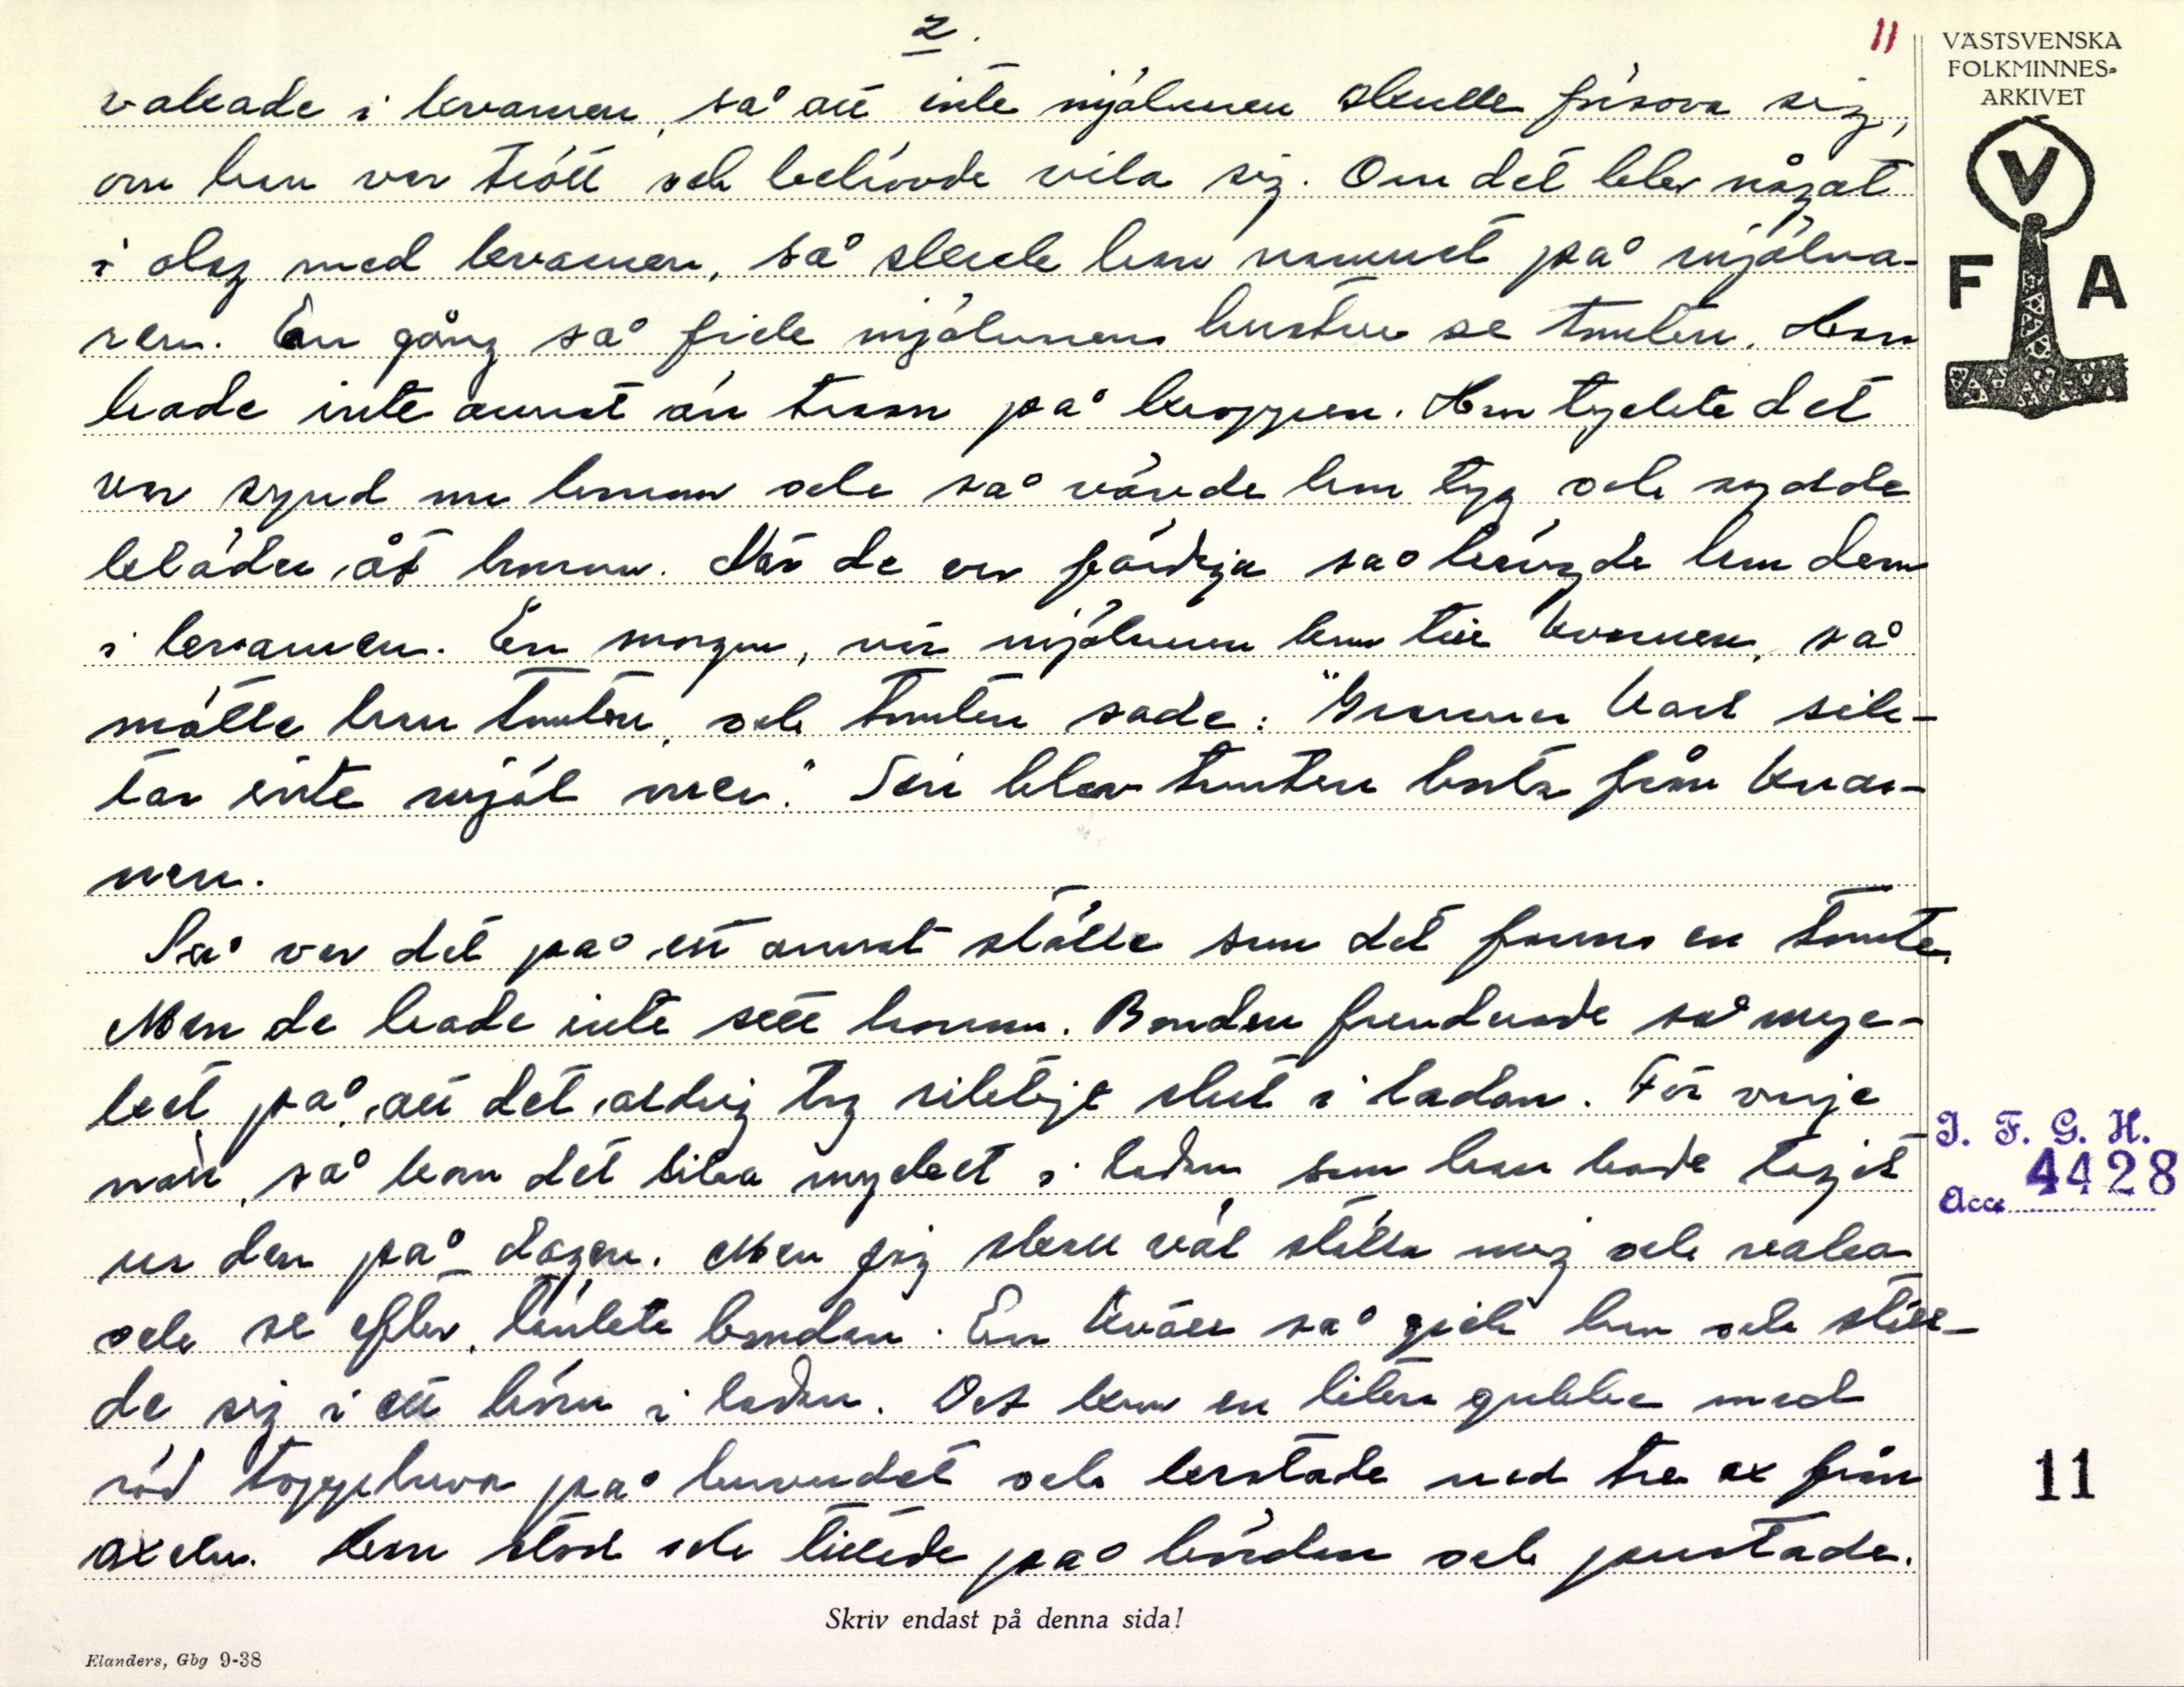 2.
11
vakade i kvarnen, så att inte mjölnaren skulle försova sig,
om han var trött och behövde vila sig. Om det blev något
i olag med kvarnen, så skulle han namnet på mjölna-
ren. En gång så fick mjölnarens hustru se tomten. Han
hade inte annat än trasor på kroppen. Hon tyckte det
var synd om honom och så vävde hon tyg och sydde
kläder åt honom. När de var färdiga så hängde hon dem
i kvarnen. En morgon, när mjölnaren kom till kvarnen, så
mötte han tomten, och tomten sade: "Granner Karl sik-
tar inte mjöl mer." Sen blev tomten borta från kvar-
nen.
Så var det på ett annat ställe som det fanns en tomte.
Men de hade inte sett honom. Bonden fundrade så myc-
ket på, att det aldrig tog riktigt slut i ladan. För varje
natt, så kom det lika mycket i ladan som han hade tagit
ur den på dagen. Men jag skall väl ställa mig och vaka
och se efter, tänkte bonden. En kväll så gick han och ställ-
de sig i ett hörn i ladan. Det kom en liten gubbe med
röd toppluva på huvudet och kastade ned tre ax från
axeln. Han stod och tittade på bördan och pustade.
VÄSTSVENSKA
FOLKMINNES-
ARKIVET
V
F A
I. F. G. H.
Acc. 4428
11
Skriv endast på denna sida!
Elanders, Gbg 9-38